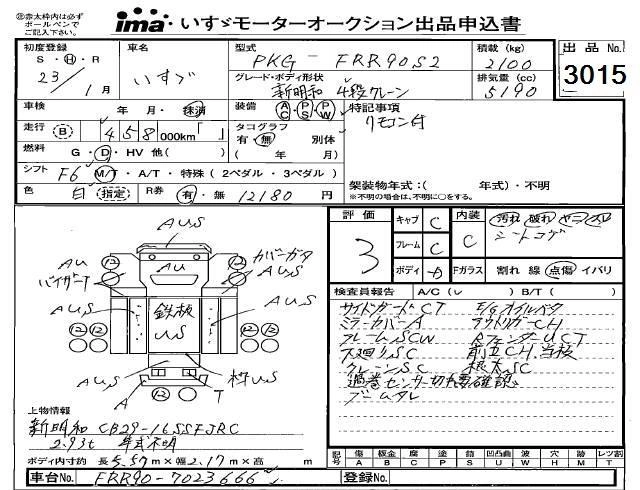 ㊟赤太枠内は必ず
ボールペンで
ご記入下さい。
ima いすゞモーターオークション出品申込書
初度登録
S・H・R
23年1月
車名
いすゞ
型式
PKG-FRR90S2
グレード・ボディ形状
新明和 4段クレーン
積載(kg)
2100
排気量(cc)
5190
出品No.
3015
車検 年・月・抹消
装備 AC・PS・PW
特記事項
リモコン付
走行 B 458,000km「 」
タコグラフ
有・無 別体
( 年 月)
燃料 G・D・HV 他( )
シフト F6 M/T・A/T・特殊(2ペダル・3ペダル)
架装物年式:( 年式)・不明
※不明の場合は、不明に○をする。
色 白 指定 R券 有・無 12180円
AUS
AU
カバーガタ
AU
バイザーT
AUS
AUS
鉄板
US
AUS
AUS
枠US
A
T
12
評価
3
キャブ C
フレーム C
ボディ
内装
C
汚れ 破れ ヤニ・スレ
シートコゲ
Fガラス 割れ 線 点傷 イバリ
検査員報告 A/C( ) B/T( )
サイドガードCT
E/Gオイルハータ
ミラーカバーA
アウトリガーCH
フレームSCW
RフェンダーUCT
下廻りSC
前立CH、当板
クレーンSC
根太SC
過巻センサー切れ要確認
ブームタレ
上物情報
新明和 CB29-16SSFJRC
2.93t 年式不明
ボディ内寸約 長5.57m×幅2.17m×高 m
記号 傷 板金 腐 塗 錆 凹凸曲 波 穴 跡 レツ割
A B C P S U W H M T
車台No. FRR90-7023666
登録No.